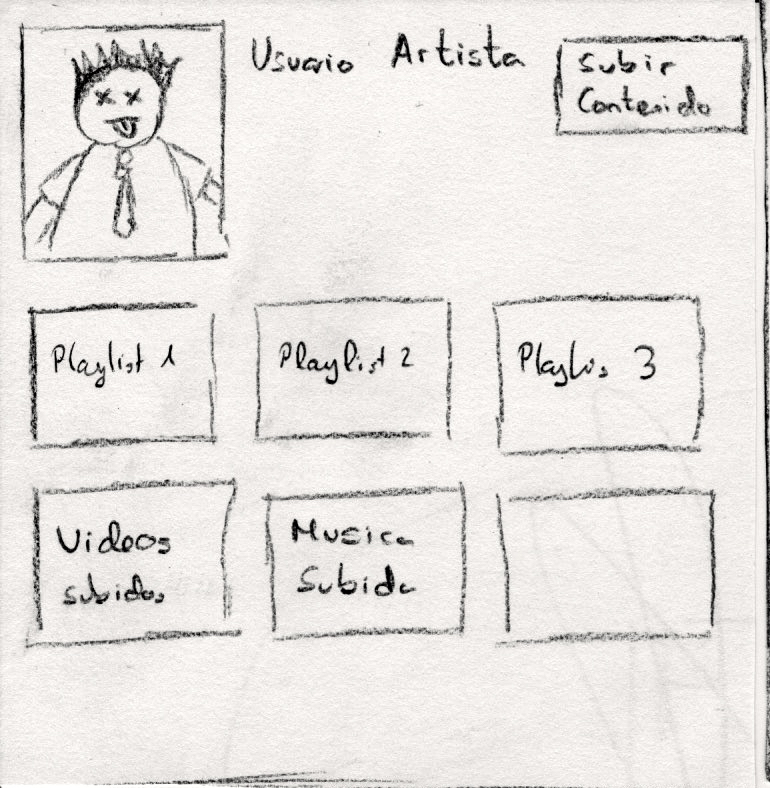 Usuario Artista
Subir
Contenido
Playlist 1
Playlist 2
Playlis 3
Videos
subidos
Musica
Subida